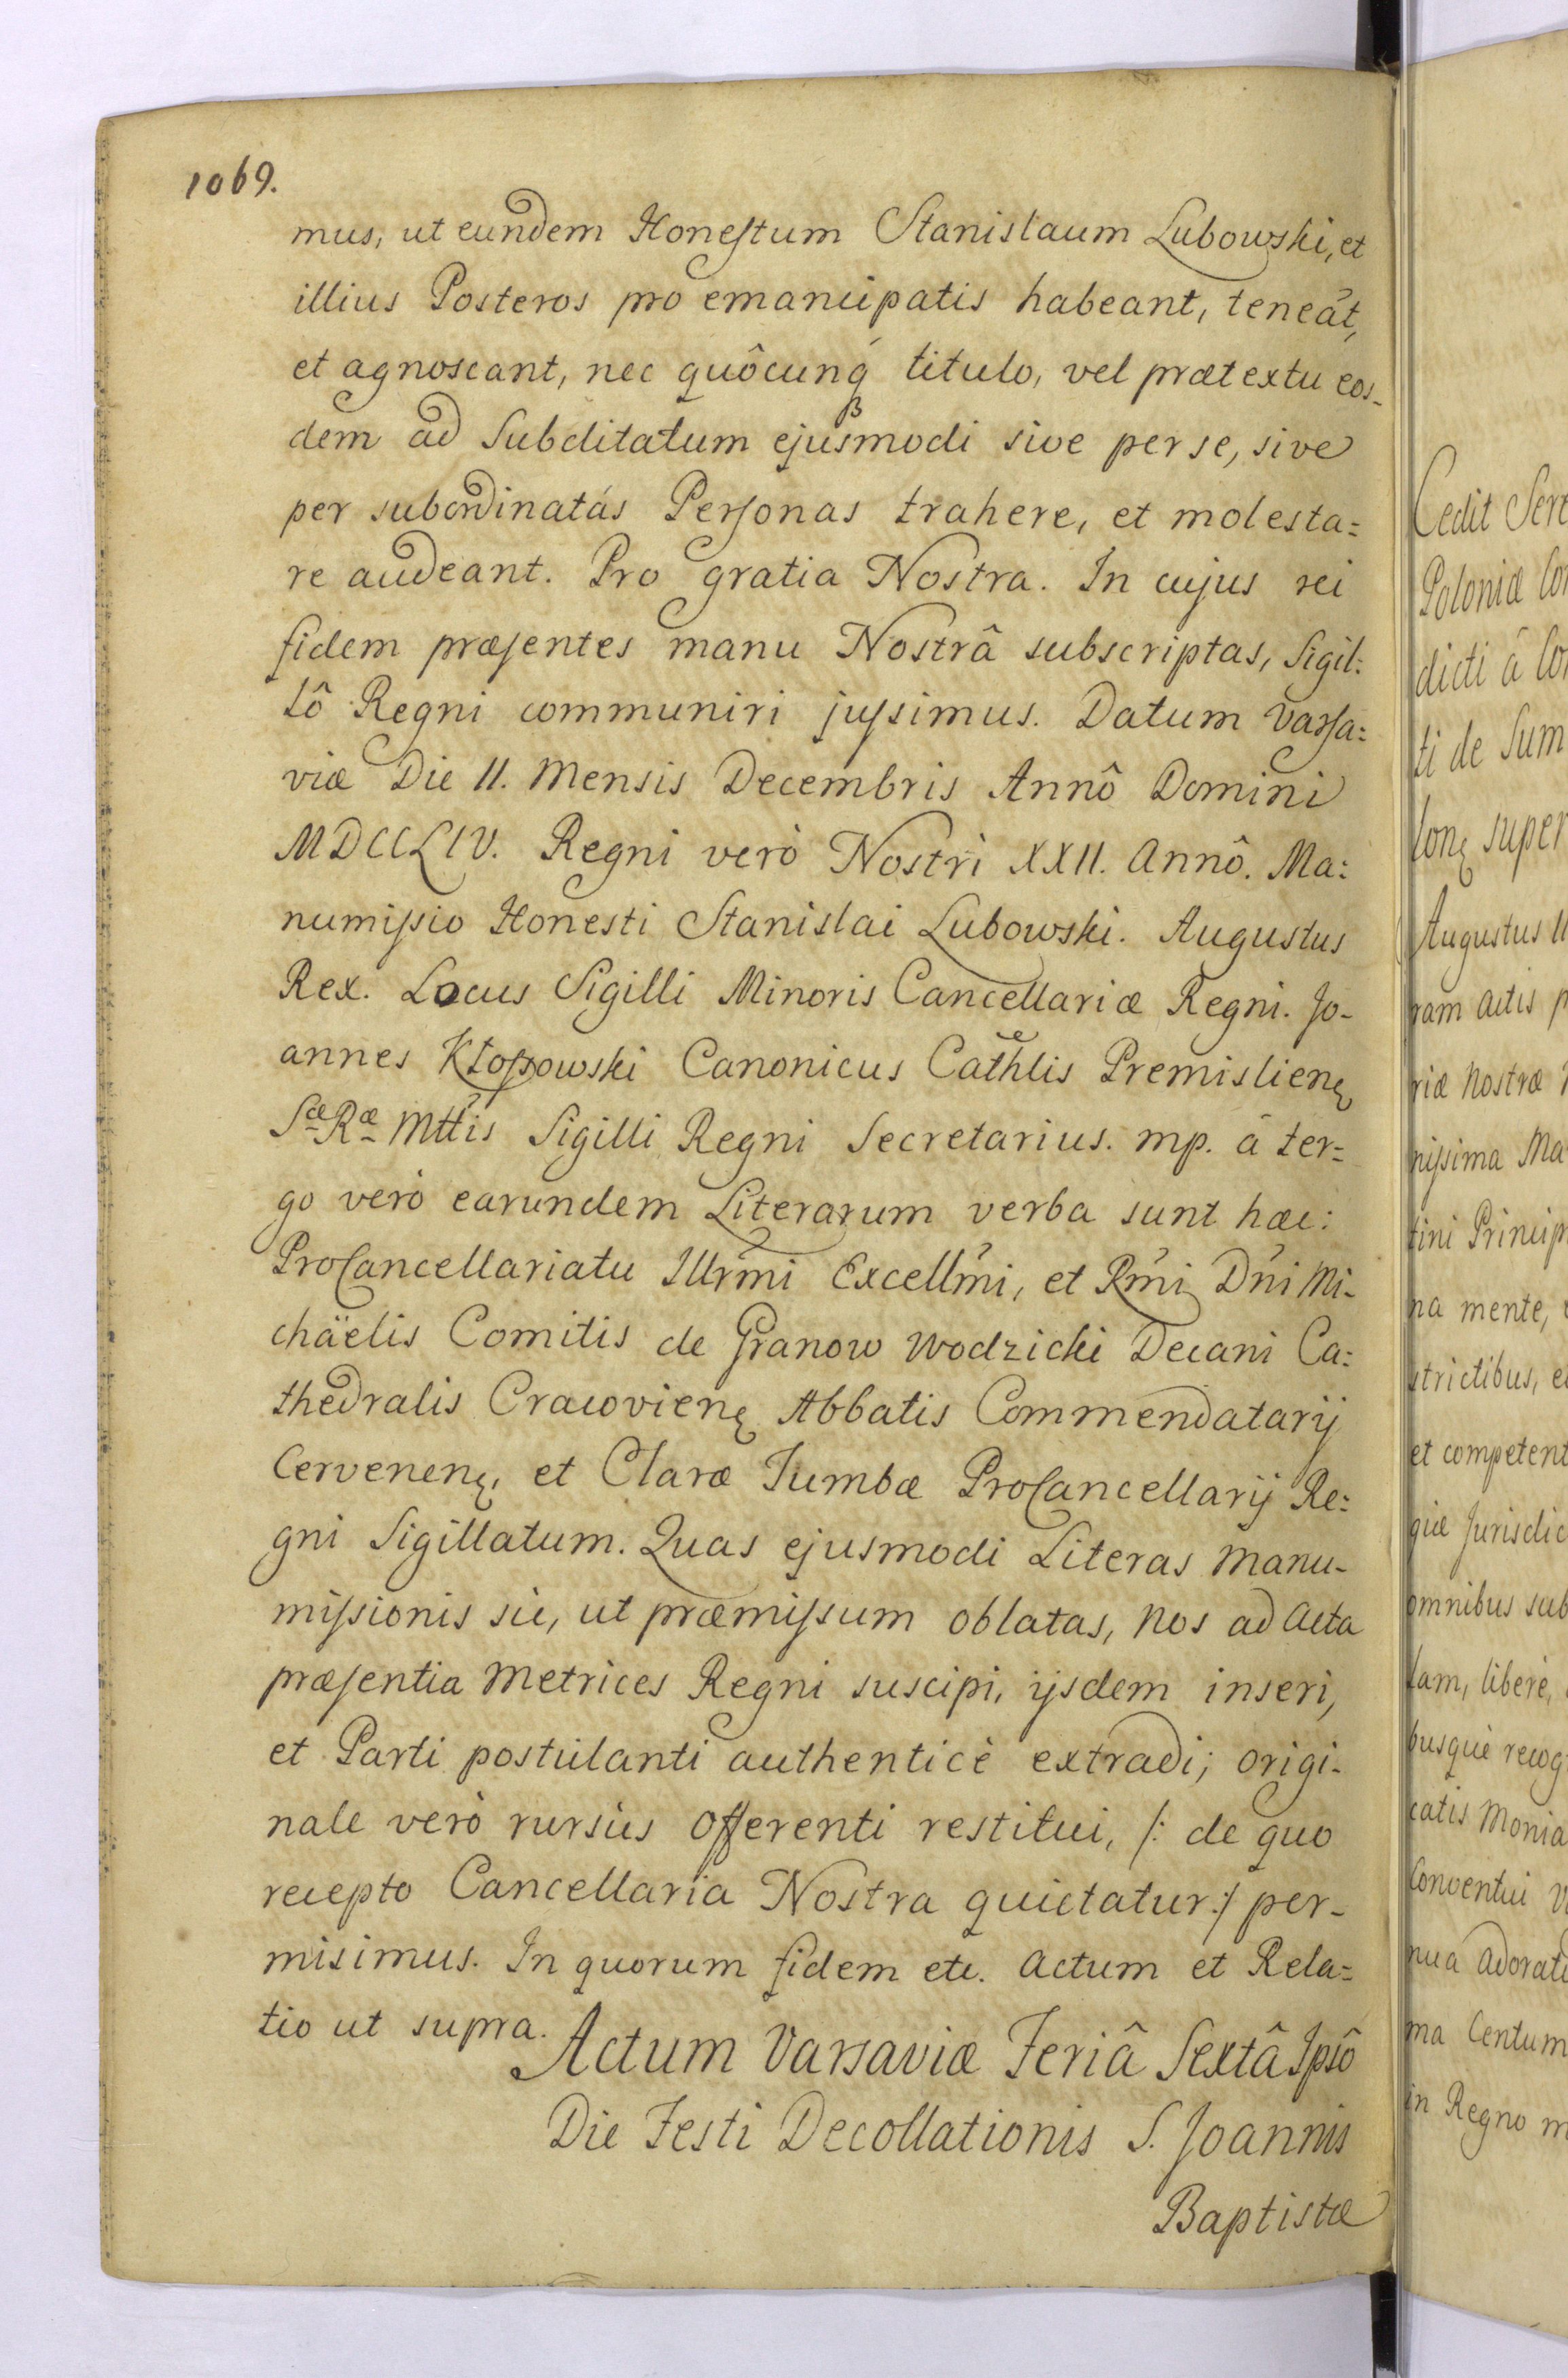 1069.
mus, ut eundem Honestum Stanislaum Lubowski, et
illius Posteros pro emancipatis habeant, teneāt,
et agnoscant, nec quôcunq́ titulo, vel prætextu eos-
dem ad Subditatum ejusmodi sive per se, sive
per subordinatás Personas trahere, et molesta=
re audeant. Pro gratia Nostra. In cujus rei
fidem præsentes manu Nostrâ subscriptas, Sigil=
lô Regni communiri jussimus. Datum Varsa=
viæ Die 11. Mensis Decembris Annô Domini
MDCCLIV. Regni verò Nostri XXII. Annô. Ma=
numissio Honesti Stanislai Lubowski. Augustus
Rex. Locus Sigilli Minoris Cancellariæ Regni. Jo-
annes Kłossowski Canonicus Cathlis Premislienę
Sæ Ræ Mttis Sigilli Regni Secretarius. mp. â ter=
go verò earundem Literarum verba sunt hæc:
ProCancellariatu Illrm̃i Excellm̃i, et Rm̃i Dñi Mi-
chäelis Comitis de Granow Wodzicki Decani Ca=
thedralis Cracovienę Abbatis Commendatarij
Cervenenę, et Claræ Tumbæ ProCancellarij Re=
gni Sigillatum. Quas ejusmodi Literas Manu-
missionis sic, ut præmissum oblatas, Nos ad Acta
præsentia Metrices Regni suscipi, ijsdem inseri,
et Parti postulanti authenticè extradi; origi-
nale verò rursùs Offerenti restitui, /: de quo
recepto Cancellaria Nostra quietatur :/ per-
misimus. In quorum fidem etc. Actum et Rela=
tio ut supra.
Actum Varsaviæ Feriâ Sextâ Ipsô
Die Festi Decollationis S. Joannis
Baptistæ
Cedit Sere
Poloniæ
dicti â
ti de Sum
super
Augustus
ram Actis
riæ Nostræ
nissima Ma
tini Princip
na mente,
strictibus,
et competent
giæ Jurisdic
omnibus sub
lam, liberè,
busquè recog
catis Monia
Conventui
nua adorati
ma Centum
in Regno